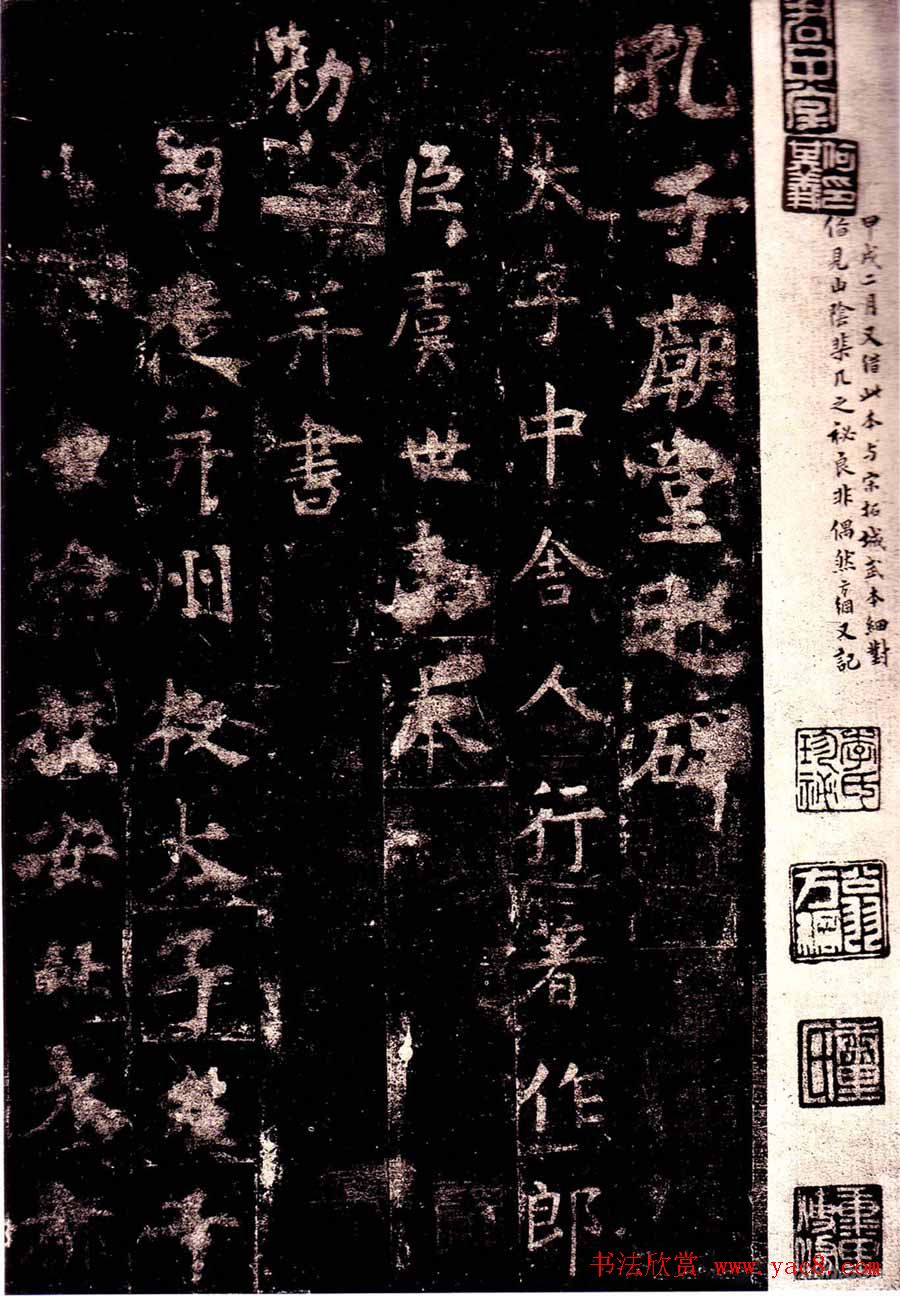 甲戌二月又借此本与宋拓城武本細對
信見山陰棐几之秘良非偶然方綱又記
李氏珍秘
翁方綱
孔子廟堂之碑
太子中舍人行著作郎
臣虞世南奉
勑并書
司徒并州牧太子左千
安北大
书法欣赏 www.yac8.com